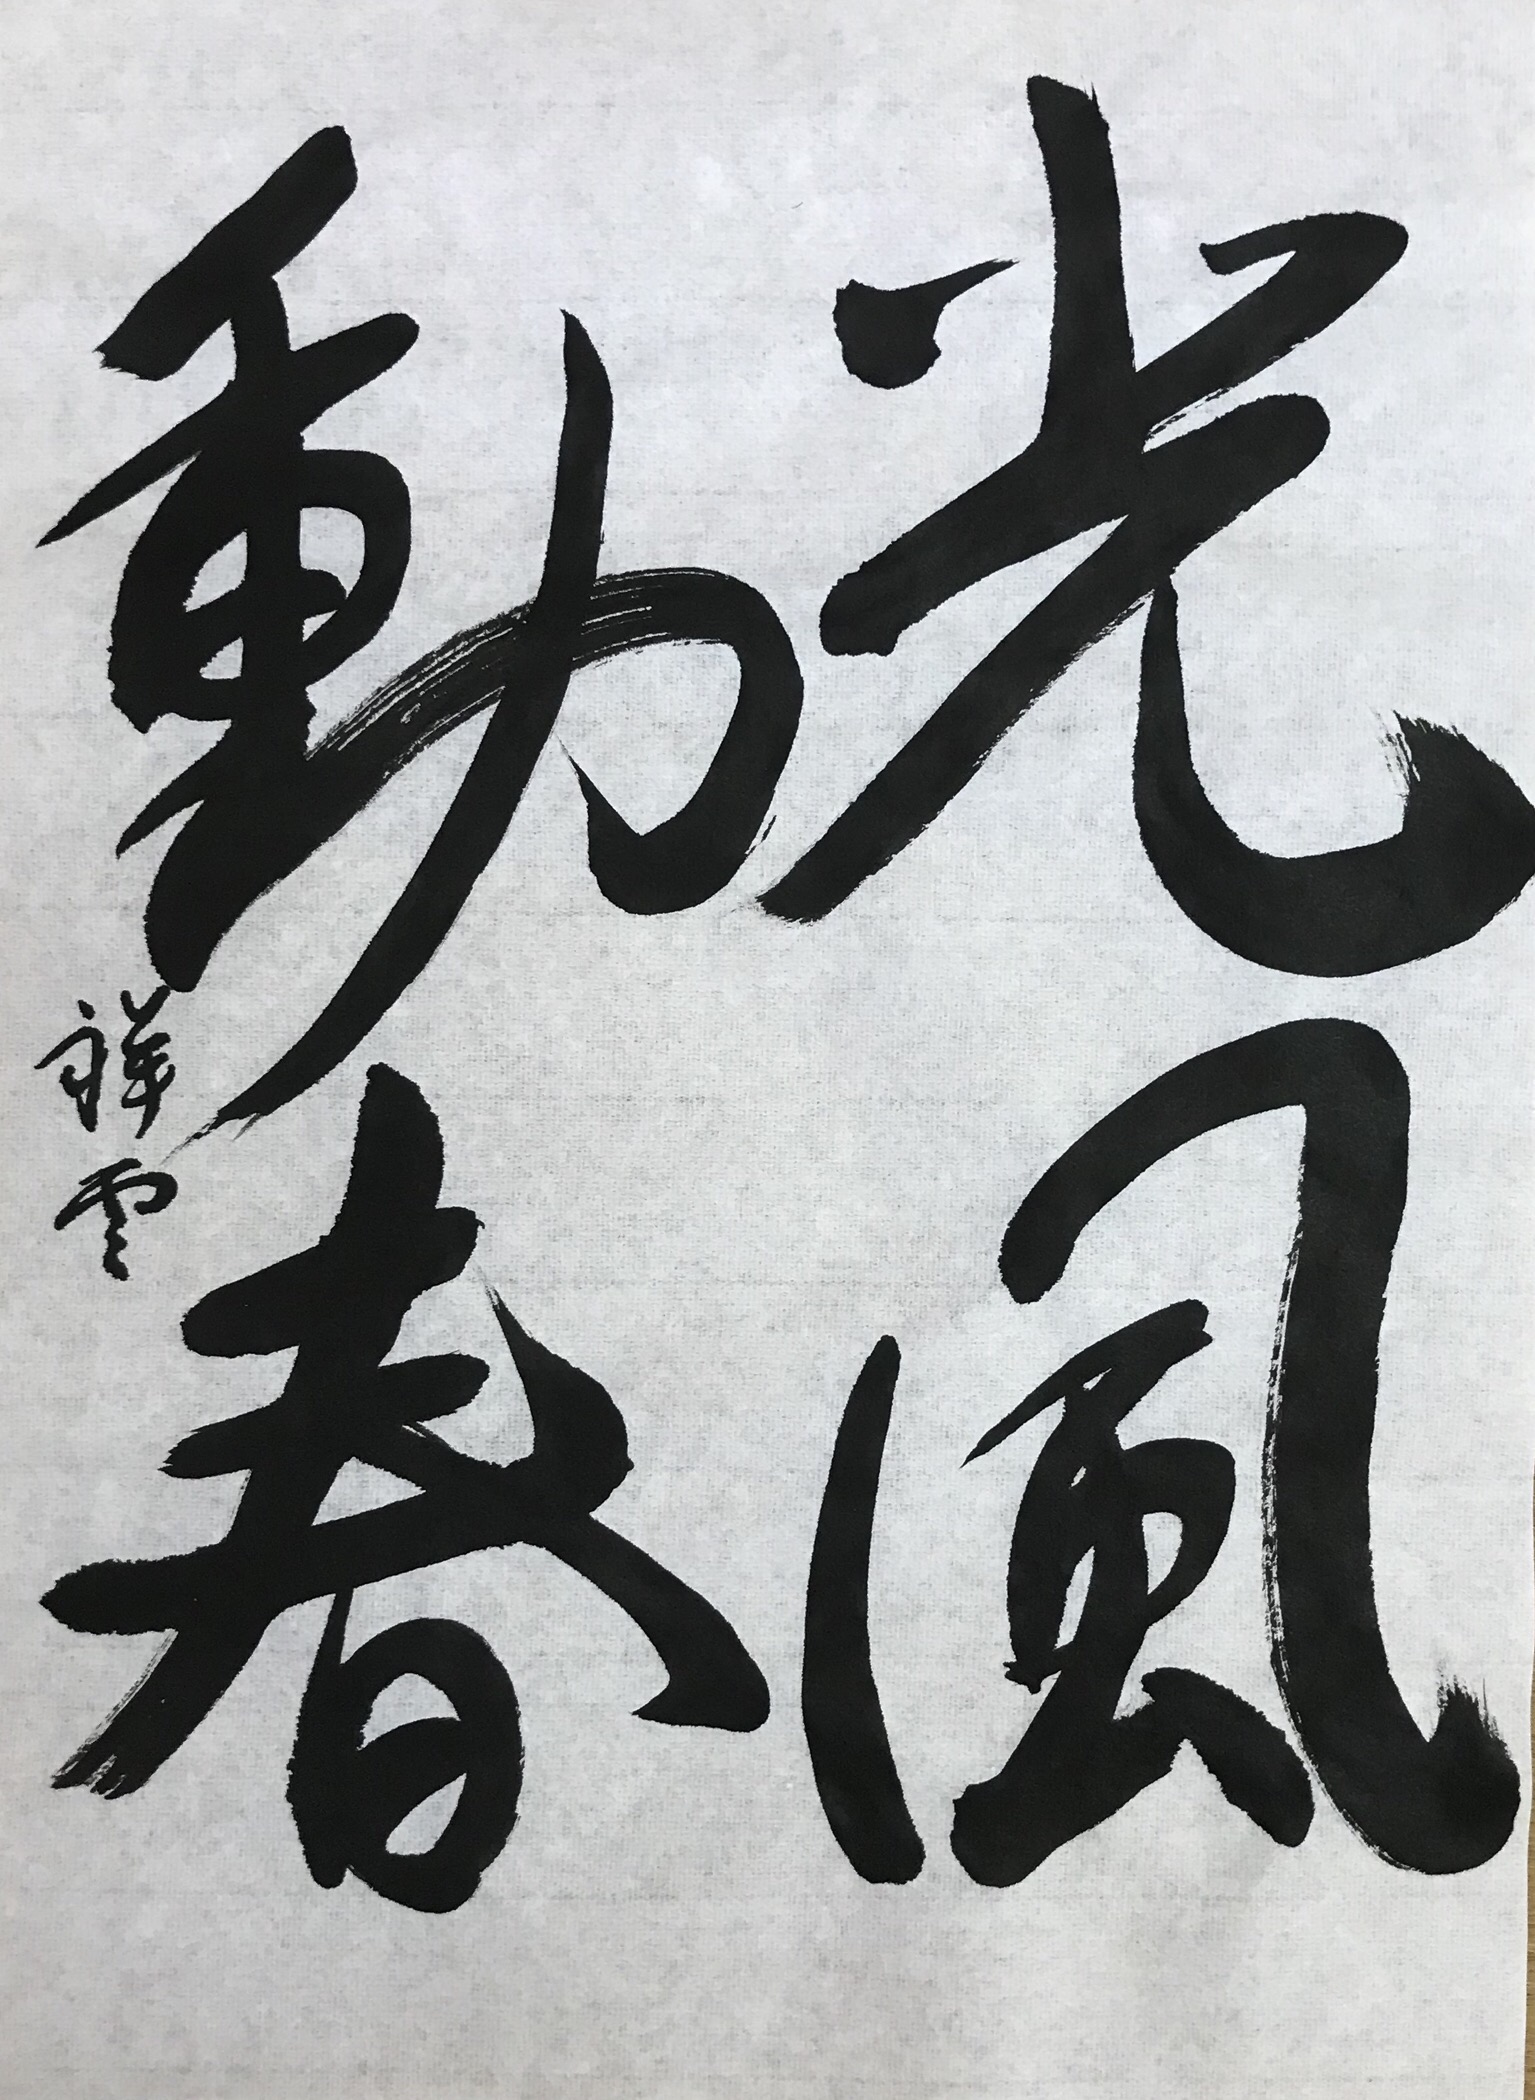 光風
動春
祥雲